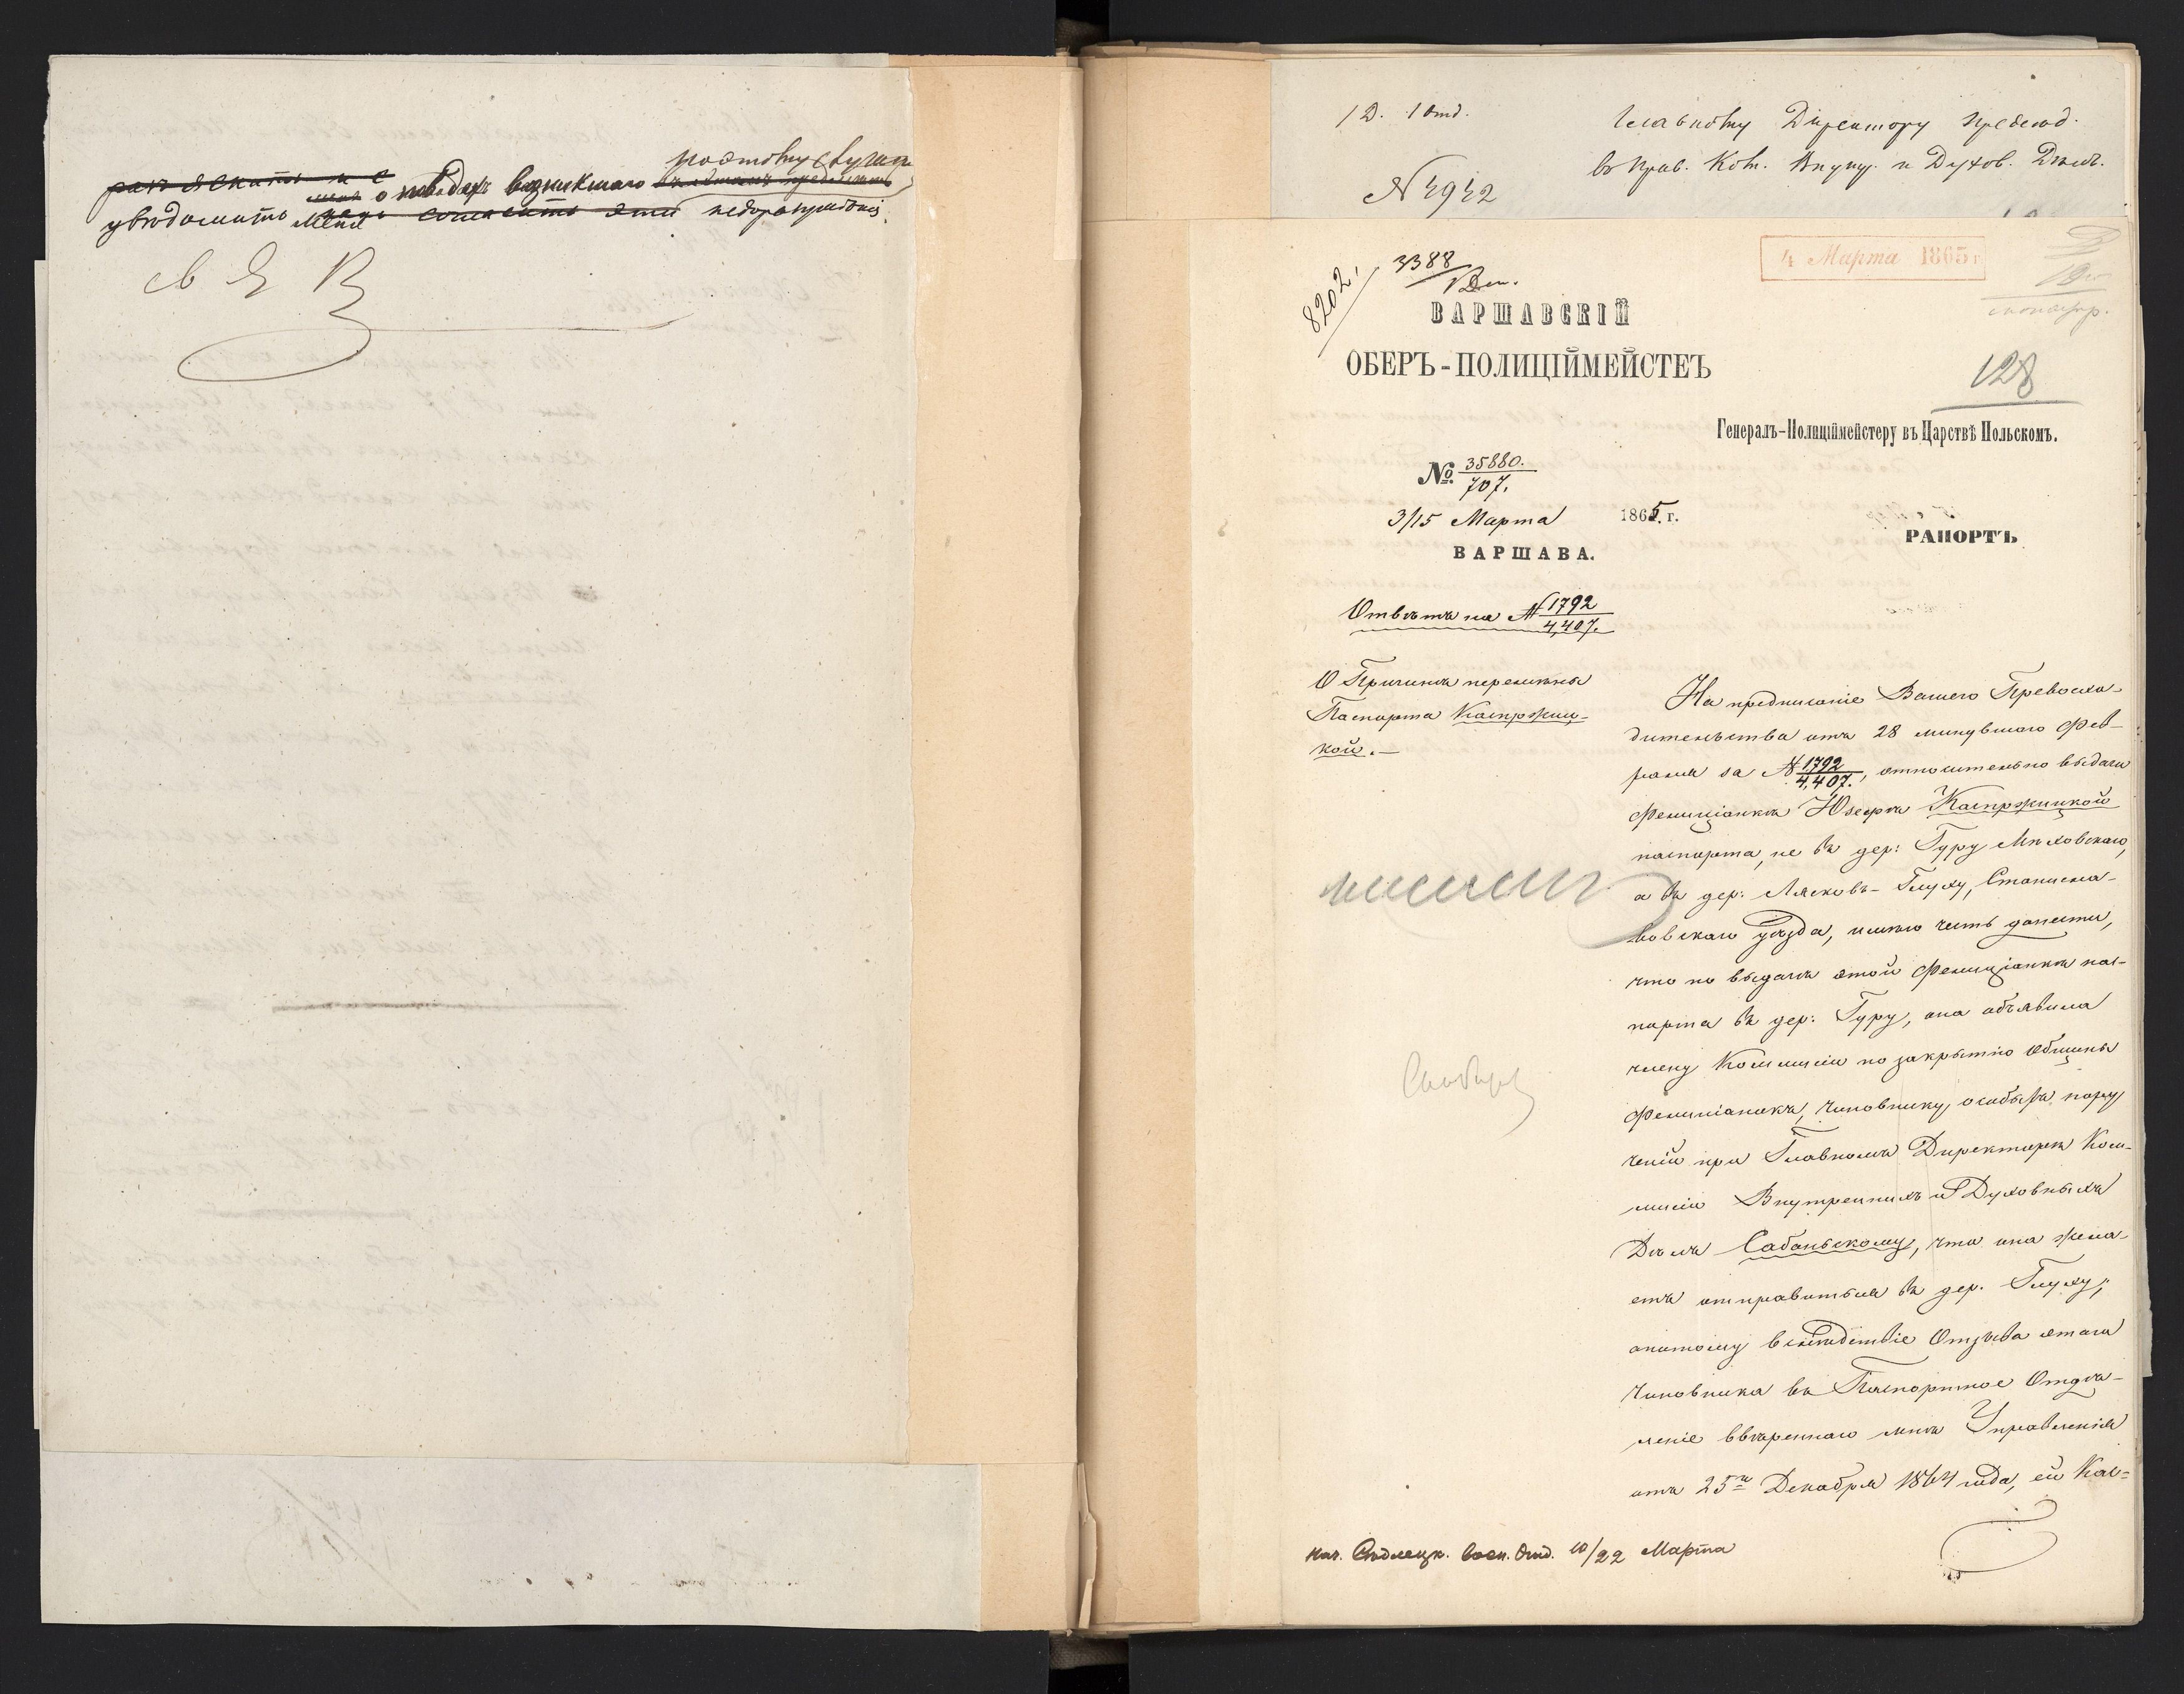 поэтому случаю
разъяснить и с
о поводе возникшаго
уведомить меня согласить эти недоразумения
1 Д. 1 отд.
Главному Директору Председ.
в Прав. Ком. Внутр. и Духов. Делъ.
№ 4942
4 Марта 1865 г.
8202
3388
ВАРШАВСКІЙ
ОБЕРЪ-ПОЛИЦІЙМЕЙСТЕЪ
128
Генералъ-Полиціймейстеру въ Царствѣ Польскомъ.
№ 35880.
707.
3/15 Марта 1865 г.
РАПОРТЪ
ВАРШАВА.
Отвѣтъ на № 1792
4,407.
О Причинѣ перемѣны
Паспорта Каспржиц-
кой.—
На предписаніе Вашего Превосхо-
дительства отъ 28 минувшаго Фев-
раля за № 1792
4,407., относительно выдачи
Фелиціанкѣ Юзефѣ Каспржицкой
паспорта, не въ дер: Гуру Мѣховскаго,
а въ дер: Лясковъ-Глуху, Станисла-
вовскаго уѣзда, имѣю честь донести,
что по выдачѣ этой Фелиціанкѣ пас-
порта въ дер: Гуру, она объявила
члену Коммисіи по закрытію Общины
Фелиціанокъ, чиновнику особыхъ пору
ченій при Главномъ Директорѣ Ком-
мисіи Внутреннихъ и Духовныхъ
Дѣлъ Сабаньскому, что она жела-
етъ отправиться въ дер. Глуху;
апотому вслѣдствіе Отзыва этого
Чиновника въ Паспортное Отдѣ-
леніе ввѣреннаго мнѣ Управленія
отъ 25го Декабря 1864 года, ей Кас=
Нач. Сѣдлецк. воен. Отд. 10/22 Марта